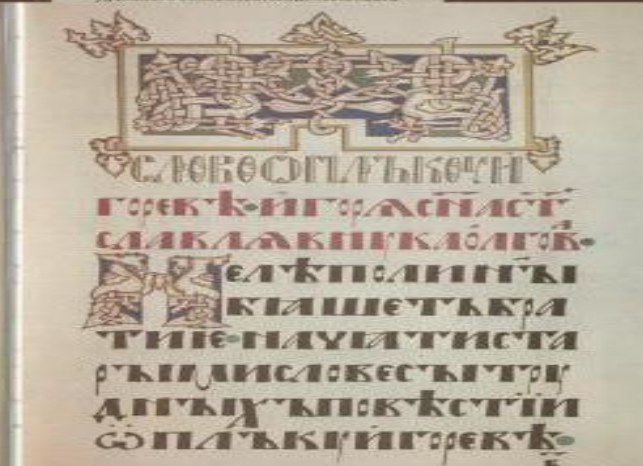 СЛОВО Ѡ ПЛЪКОУ И
ГОРЕВѢ · И҆ГОРѦ С҃Н А СТ҃
СЛАВЛѦ ВНУКА О҆ЛГОВ ·
НЕ ЛѢПО ЛИ НЫ
БѦШЕТЬ БРА
ТИЕ · НАЧѦТИ СТА
РЫМИ СЛОВЕСЫ ТРУ
ДНЫХЪ ПОВѢСТИЙ
Ѡ ПЛЪКУ И҆ГОРЕВѢ ·